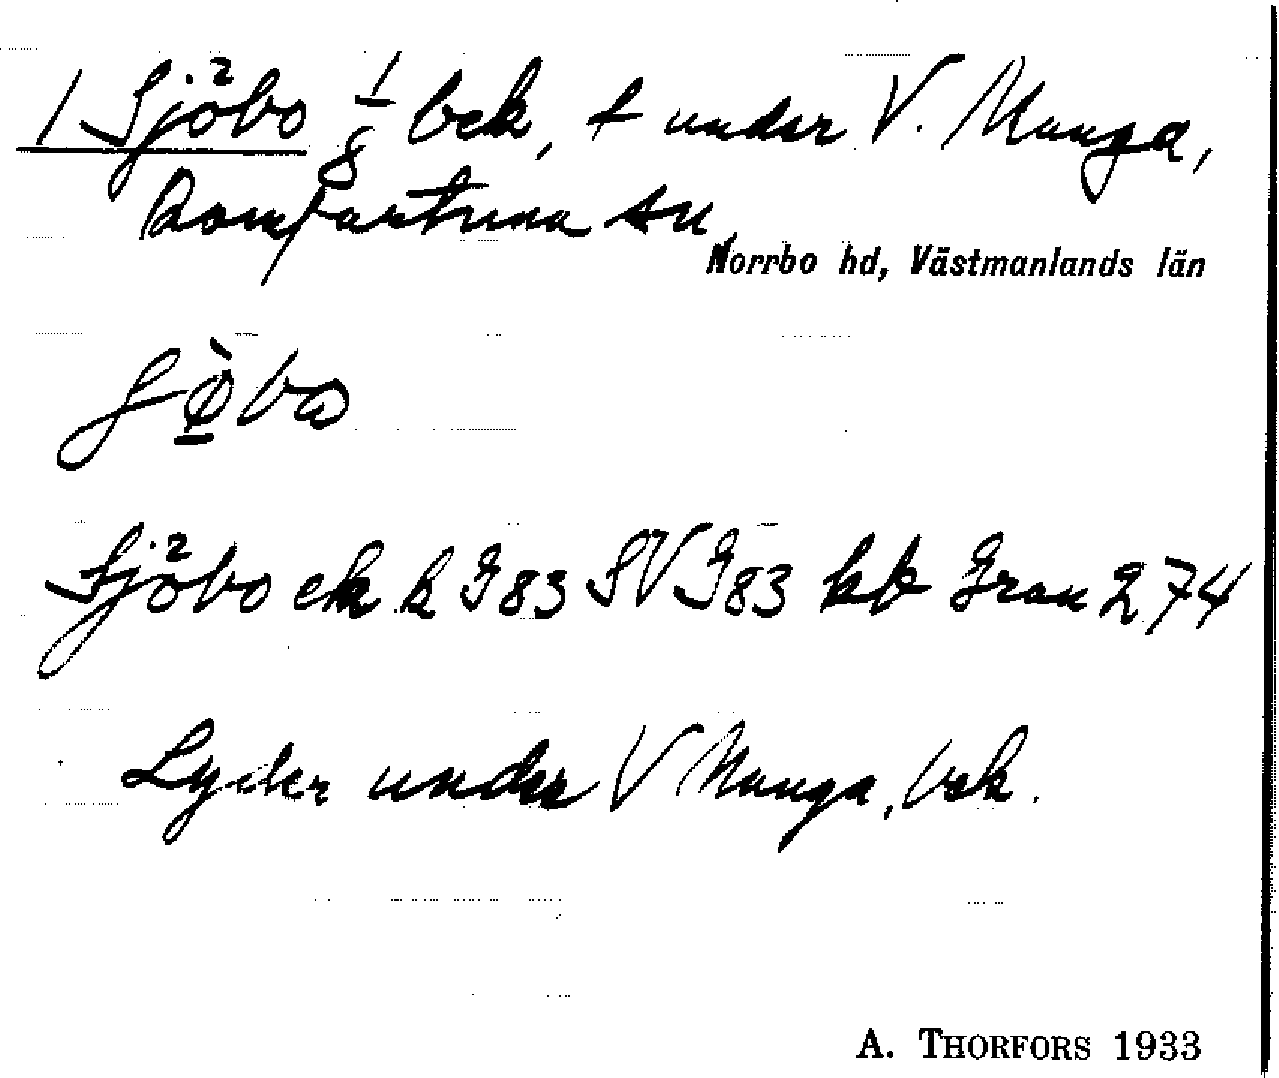 1 Sjöbo 1/8 bek, t under V. Munga,
Romfartuna sn
Norrbo hd, Västmanlands län
Sjöbo ek k I 83 SV I 83 kb Gran 274
Lyder under V Munga, bek.
A. THORFORS 1933